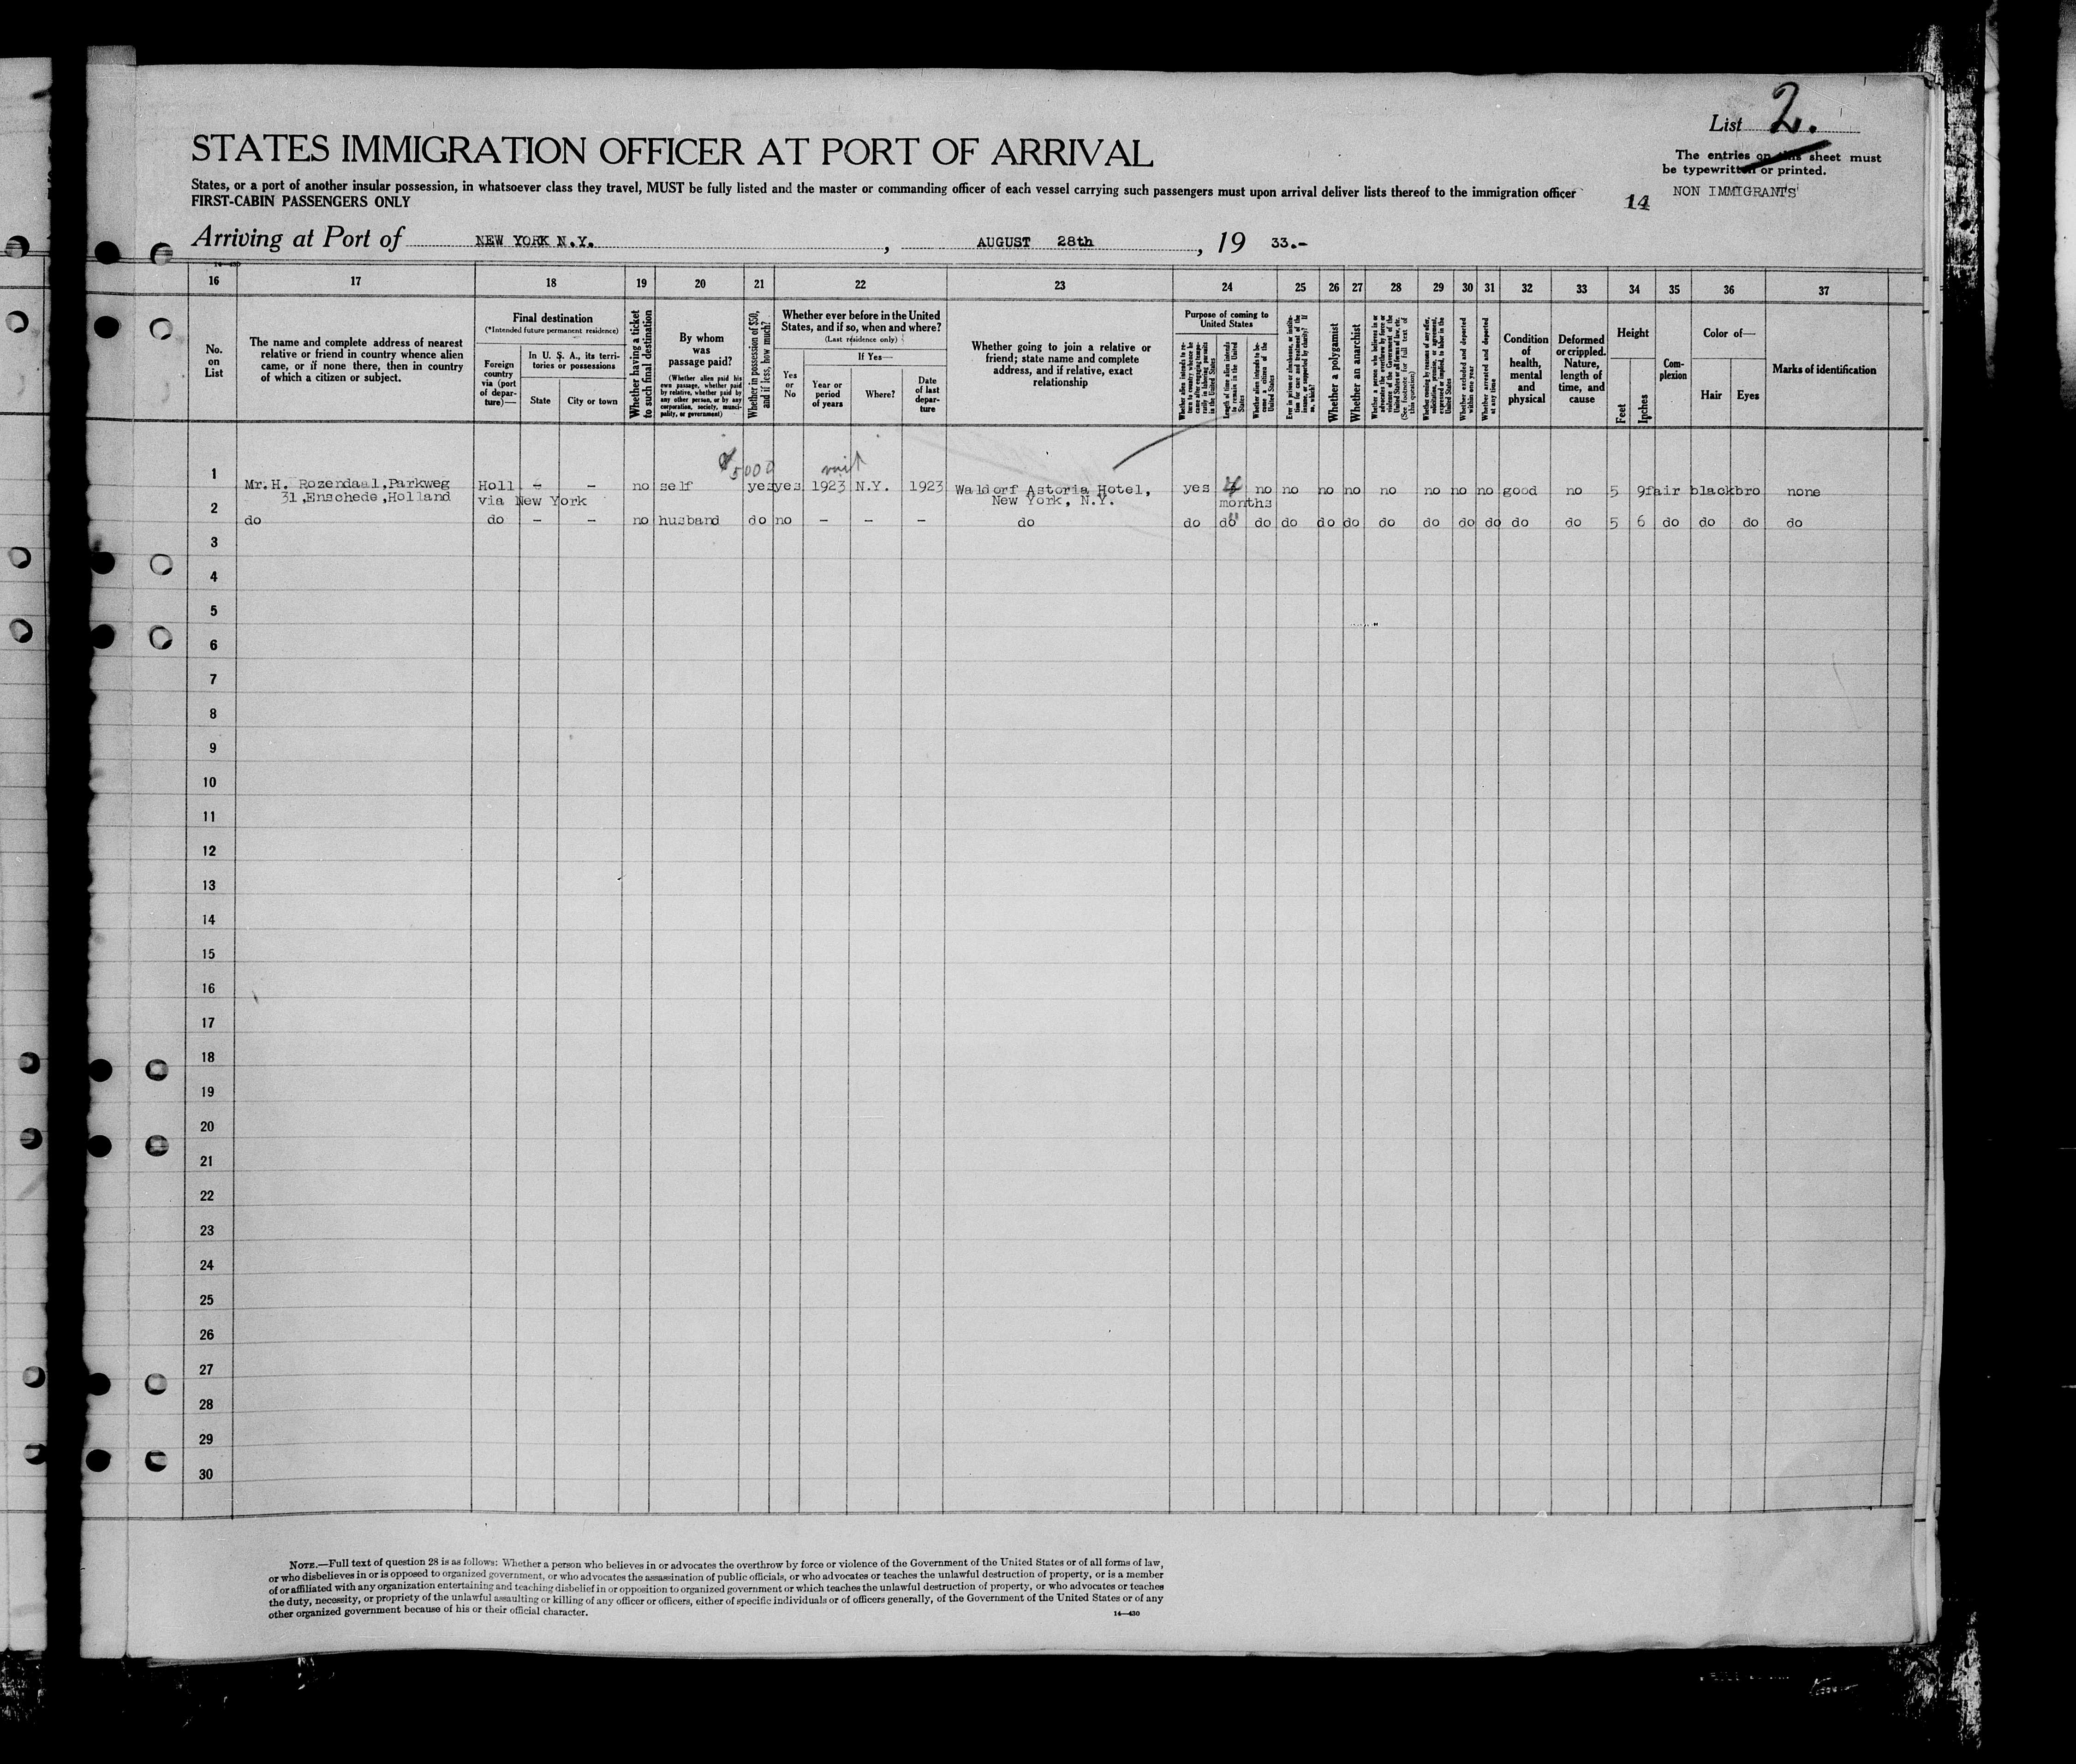 List 2.
The entries on this sheet must
be typewritten or printed.
STATES IMMIGRATION OFFICER AT PORT OF ARRIVAL
States, or a port of another insular possession, in whatsoever class they travel, MUST be fully listed and the master or commanding officer of each vessel carrying such passengers must upon arrival deliver lists thereof to the immigration officer
FIRST-CABIN PASSENGERS ONLY
14 NON IMMIGRANTS
Arriving at Port of NEW YORK N.Y. , AUGUST 28th , 19 33.-
16 17 18 19 20 21 22 23 24 25 26 27 28 29 30 31 32 33 34 35 36 37
No. on List
The name and complete address of nearest relative or friend in country whence alien came, or if none there, then in country of which a citizen or subject.
Final destination
(*Intended future permanent residence)
Foreign country via (port of departure)—
In U. S. A., its territories or possessions
State
City or town
Whether having a ticket to such final destination
By whom was passage paid?
(Whether alien paid his own passage, whether paid by relative, whether paid by any other person, or by any corporation, society, municipality, or government)
Whether in possession of $50, and if less, how much?
Whether ever before in the United States, and if so, when and where?
(Last residence only)
Yes or No
If Yes—
Year or period of years
Where?
Date of last departure
Whether going to join a relative or friend; state name and complete address, and if relative, exact relationship
Purpose of coming to United States
Length of time alien intends to remain in the United States
Whether alien intends to become a citizen of the United States
Whether a polygamist
Whether an anarchist
(See footnote for full text of this question)
Whether excluded and deported within one year
Whether arrested and deported at any time
Condition of health, mental and physical
Deformed or crippled. Nature, length of time, and cause
Height
Feet
Inches
Complexion
Color of—
Hair
Eyes
Marks of identification
$5000 visit
1 Mr.H. Rozendaal,Parkweg Holl - - no self yes yes 1923 N.Y. 1923 Waldorf Astoria Hotel, yes 4 no no no no no no no no good no 5 9 fair black bro none
31,Enschede,Holland via New York New York, N.Y. months
2 do do - - no husband do no - - - do do do do do do do do do do do do do 5 6 do do do do
3
4
5
6
7
8
9
10
11
12
13
14
15
16
17
18
19
20
21
22
23
24
25
26
27
28
29
30
NOTE.—Full text of question 28 is as follows: Whether a person who believes in or advocates the overthrow by force or violence of the Government of the United States or of all forms of law,
or who disbelieves in or is opposed to organized government, or who advocates the assassination of public officials, or who advocates or teaches the unlawful destruction of property, or is a member
of or affiliated with any organization entertaining and teaching disbelief in or opposition to organized government or which teaches the unlawful destruction of property, or who advocates or teaches
the duty, necessity, or propriety of the unlawful assaulting or killing of any officer or officers, either of specific individuals or of officers generally, of the Government of the United States or of any
other organized government because of his or their official character.
14—430